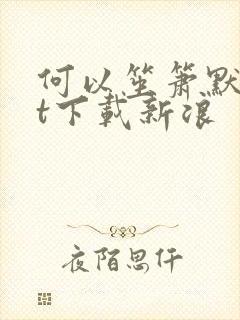 何以笙箫默
t下載新浪
夜陌思仟